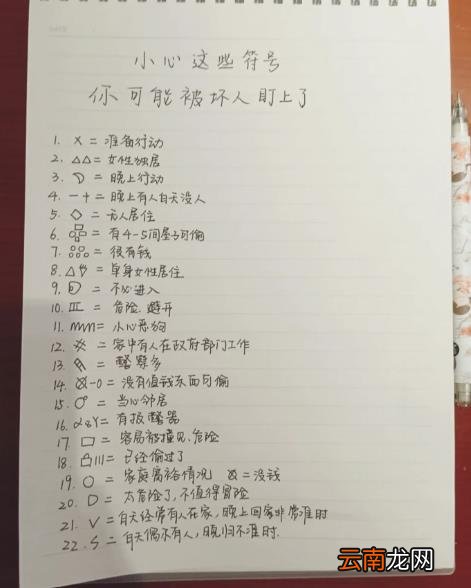 小心这些符号
你可能被坏人盯上了
1. × = 准备行动
2. △△ = 女性独居
3. = 晚上行动
4. 一 + = 晚上有人白天没人
5. ◇ = 无人居住
6. = 有4-5间屋子可偷
7. = 很有钱
8. △ = 单身女性居住
9. = 不必进入
10. = 危险.避开
11. mm = 小心恶狗
12. = 家中有人在政府部门工作
13. = 警察多
14. -0 = 没有值钱东西可偷
15. ♂ = 当心邻居
16. = 有报警器
17. □ = 容易被撞见.危险
18. = 已经偷过了
19. ○ = 家庭富裕情况 = 没钱
20. D = 太危险了,不值得冒险
21. V = 白天经常有人在家,晚上回家非常准时
22. S = 白天偶尔有人,晚归不准时.
云南龙网